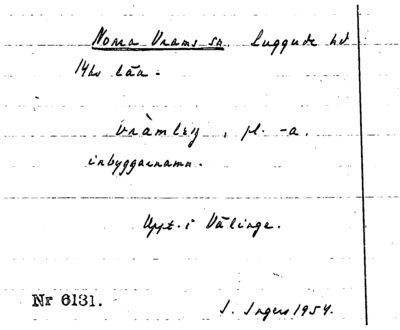 Norra Vrams sn. Luggude hd
Mhs län.
vràmləŋ, pl. -a.
inbyggarnamn.
Uppt. i Välinge.
Nr 6131.
I. Ingers 1954.